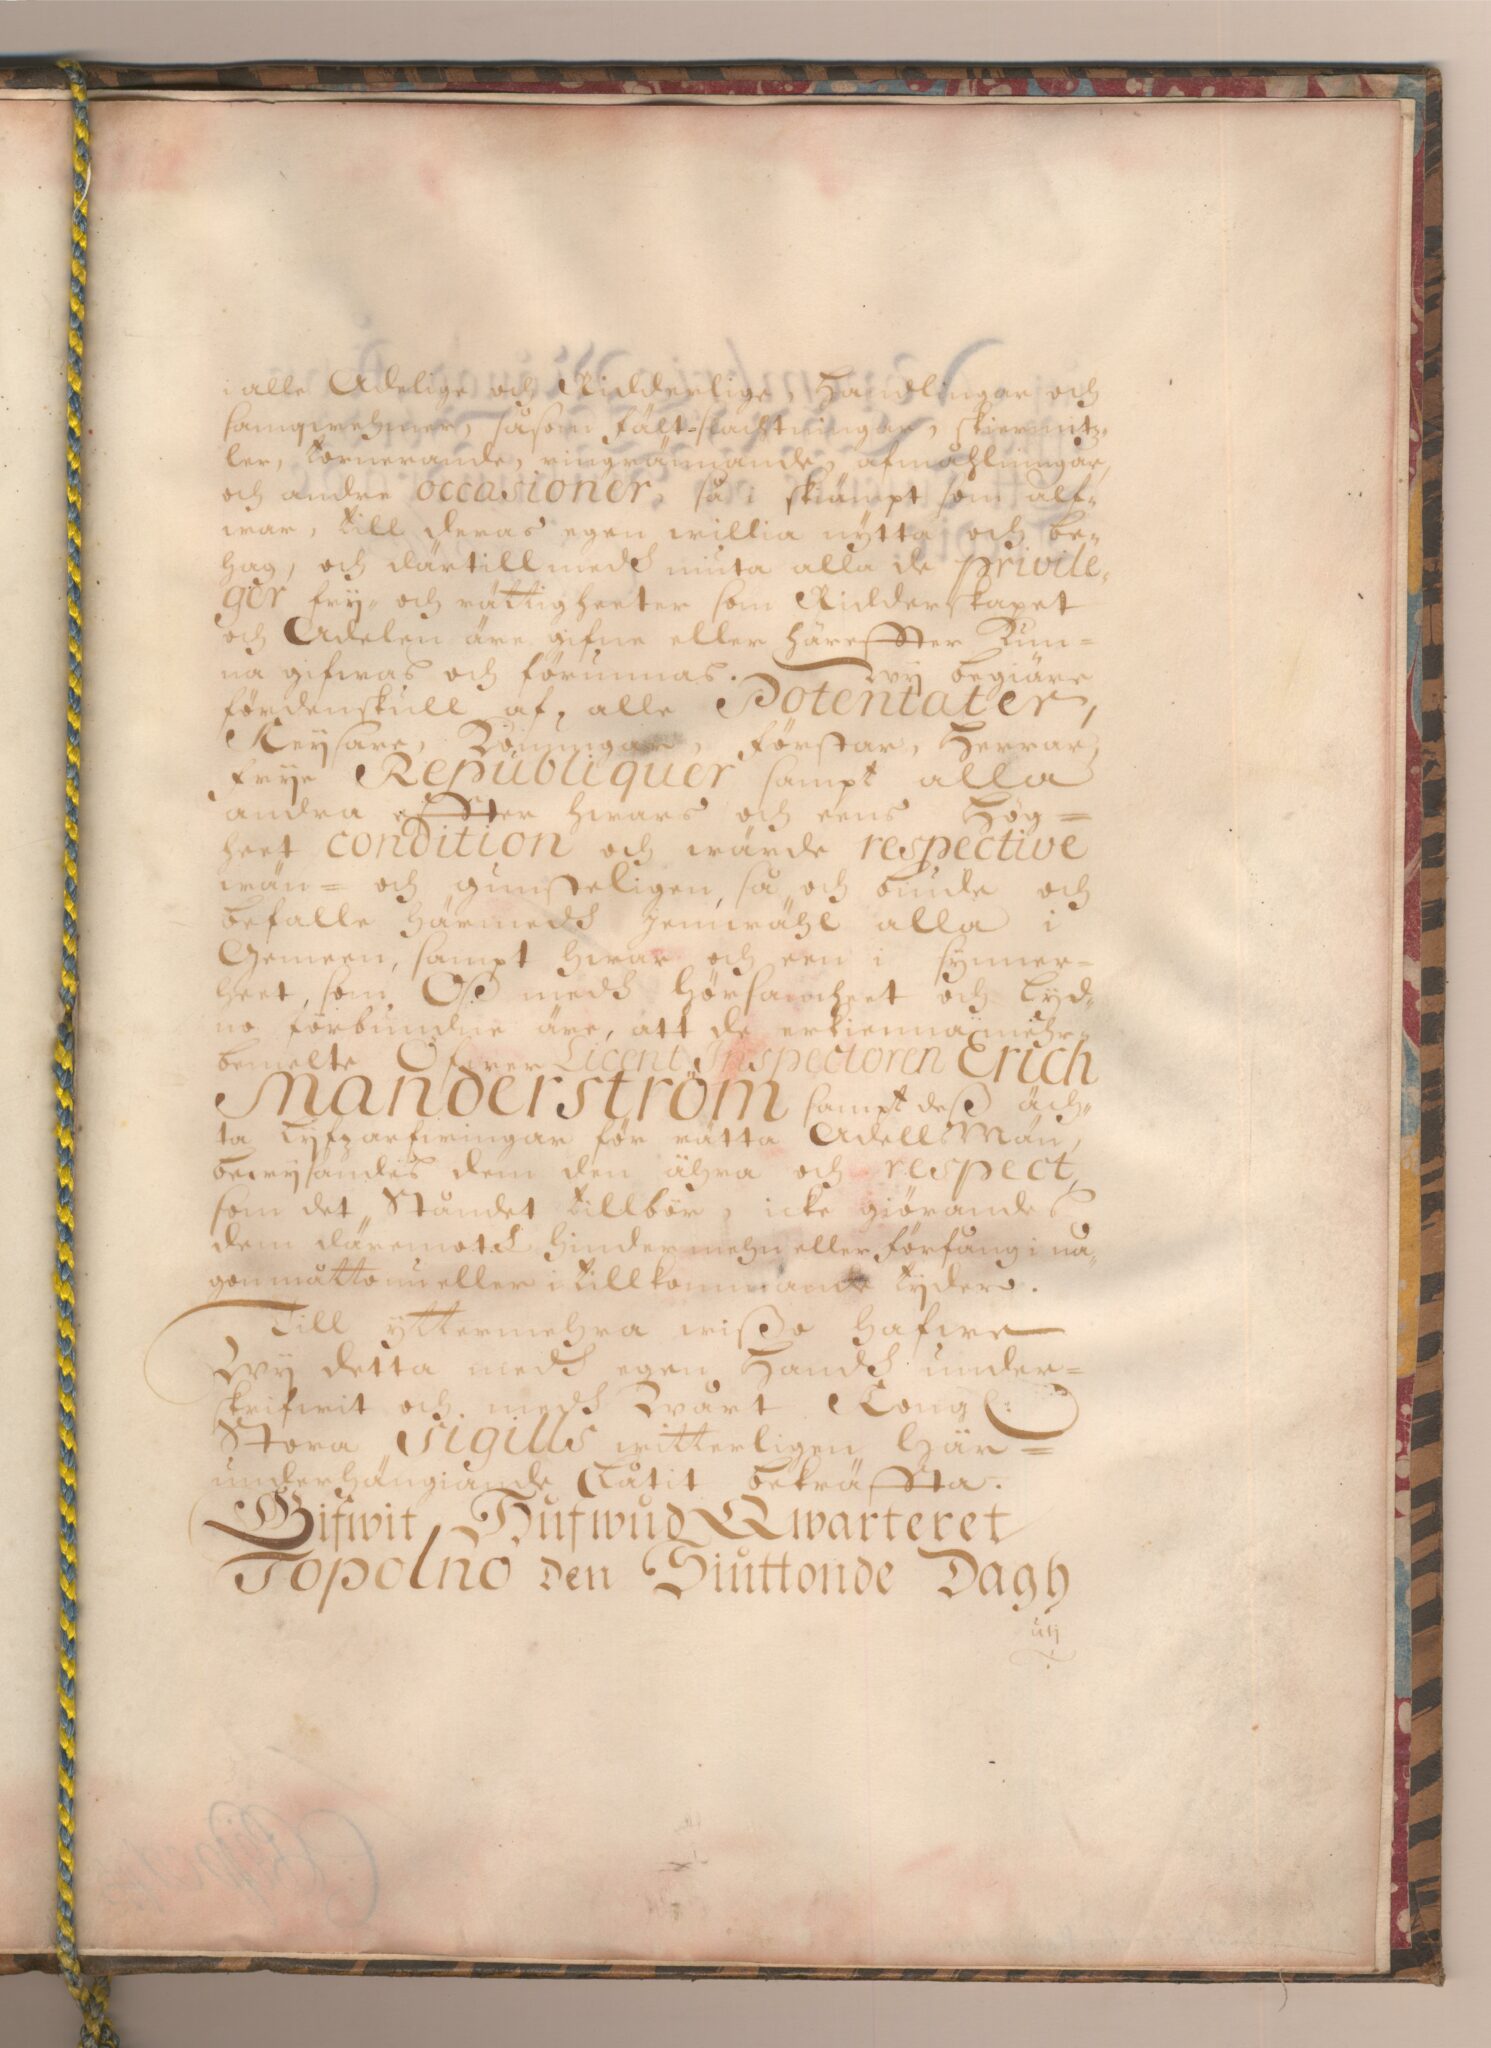 i alle Adelige och Ridderlige Handlingar och
samqwehmer, såsom fält-slachtningar, skiermitz-
ler, tornerande, ringrännande, afmåhlningar,
och andre occasioner, så i skiämpt som alf-
war, till deras egen willia nytta och be-
hag, och därtill medh niuta alla de privile-
ger fry- och rättigheeter som Ridderskapet
och Adelen äre gifne eller häreffter kun-
na gifwas och förunnas. Wy begiäre
fördenskull af alle Potentater,
Keysare, Konungar, Förstar, Herrar,
frye Republiquer sampt alla
andra effter hwars och eens Hög-
heet condition och wärde respective
wän- och gunsteligen, så och biude och
befalle härmedh jemwähl alla i
Gemeen, sampt hwar och een i synner-
heet, som Oß medh hörsamheet och lyd-
no förbundne äre, att de erkienna mehr-
bemelte Öfwer Licent Inspectoren Erich
Manderström sampt deß äch-
ta lyfzarfwingar för rätta Adell Män,
bewysandes dem den ähra och respect,
som det Ståndet tillbör, icke giörandes
dem däremoth hinder mehn eller förfång i nå-
gon måtto nu eller i tillkommande tyder.
Till yttermehra wißo hafwe
Wy detta medh egen Handh under-
skrifwit och medh Wårt Kongl:
Stora Sigills witterligen här-
underhängiande låtit bekräffta.
Gifwit Hufwud Qwarteret
Topolno den Siuttonde Dagh
utj